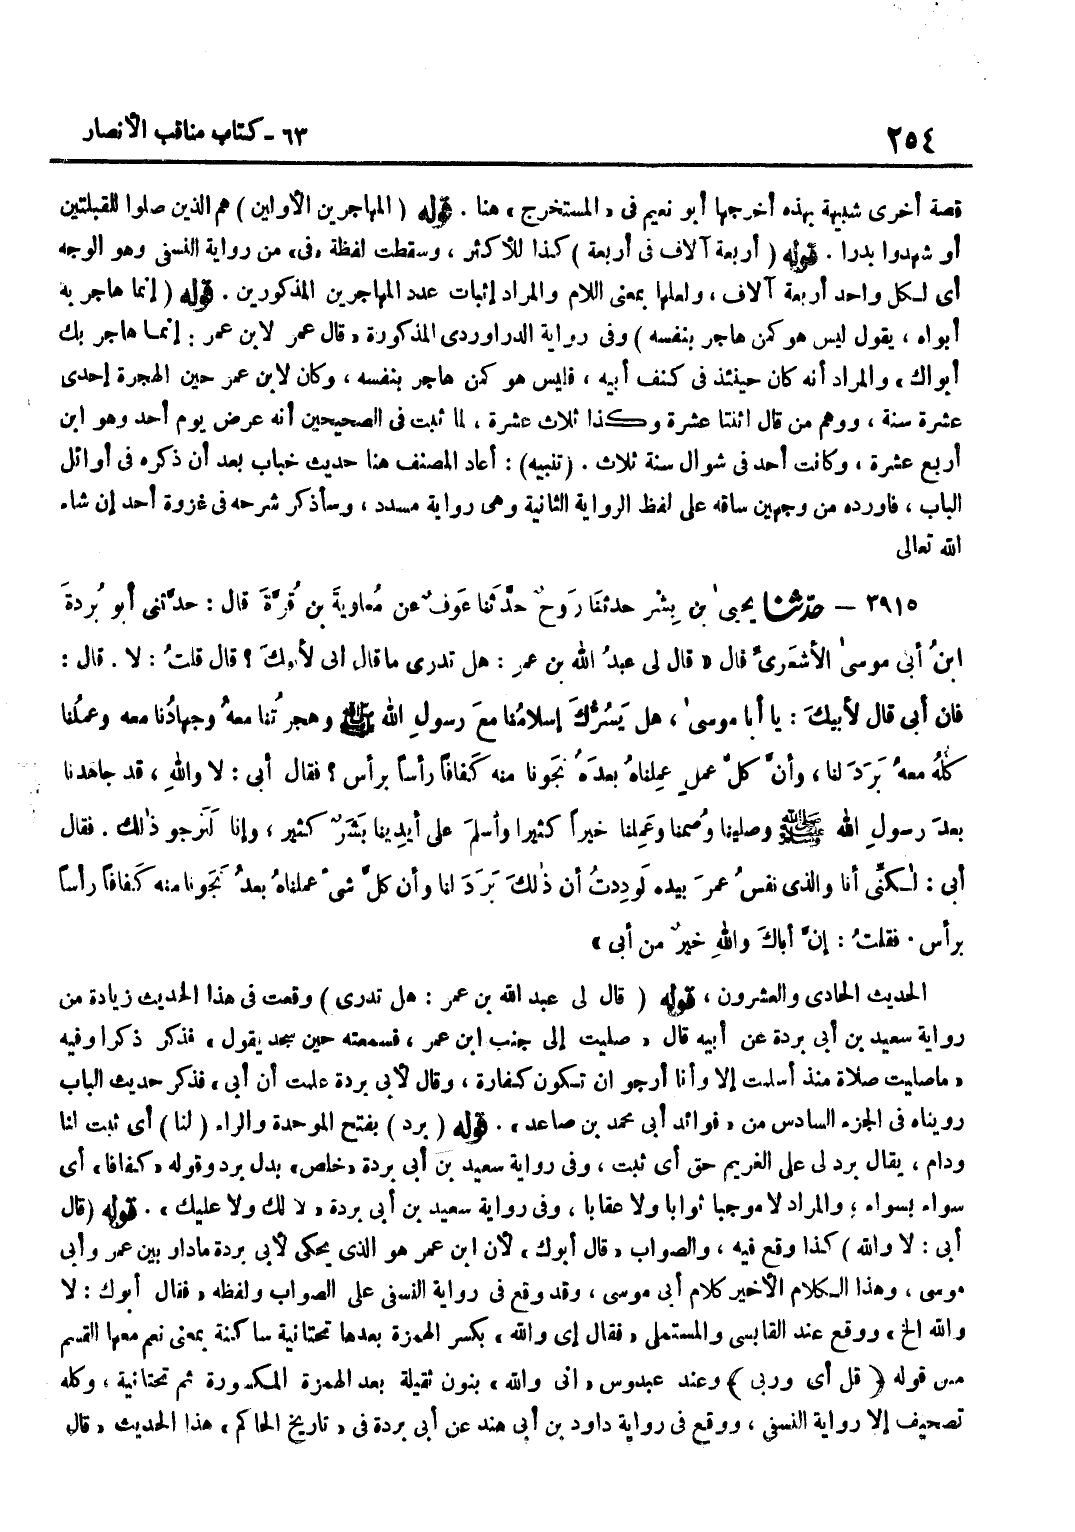 ٢٥٤
٦٣ - كتاب مناقب الأنصار
قصة أخرى شبيهة بهذه أخرجها أبو نعيم فى « المستخرج » هنا . قوله ( المهاجرين الأولين ) هم الذين صلوا للقبلتين
أو شهدوا بدرا . قوله ( أربعة آلاف فى أربعة ) كذا للأكثر ، وسقطت لفظة «فى» من رواية النسفى وهو الوجه
أى لكل واحد أربعة آلاف ، ولعلها بمعنى اللام والمراد إثبات عدد المهاجرين المذكورين . قوله ( إنما هاجر به
أبواه ، يقول ليس هو كمن هاجر بنفسه ) وفى رواية الدراوردى المذكورة « قال عمر لابن عمر : إنما هاجر بك
أبواك » والمراد أنه كان حينئذ فى كنف أبيه ، فليس هو كمن هاجر بنفسه ، وكان لابن عمر حين الهجرة إحدى
عشرة سنة ، ووهم من قال اثنتا عشرة وكذا ثلاث عشرة ، لما ثبت فى الصحيحين أنه عرض يوم أحد وهو ابن
أربع عشرة ، وكانت أحد فى شوال سنة ثلاث . (تنبيه) : أعاد المصنف هنا حديث خباب بعد أن ذكره فى أوائل
الباب ، فاورده من وجهين ساقه على لفظ الرواية الثانية وهى رواية مسدد ، وسأذكر شرحه فى غزوة أحد إن شاء
الله تعالى
٣٩١٥ – حدثنا يحيىٰ بن بِشْر حدثنَا رَوحٌ حدَّثنا عَوفٌ عن مُعاويةَ بن قُرَّةَ قال : حدَّثنى أبو بُردةَ
ابنُ أبى موسىٰ الأشعَرىِّ قال « قال لى عبدُ الله بن عمر : هل تدرى ما قال ابى لأبيكَ ؟ قال قلتُ : لا . قال :
فان أبى قال لأبيكَ : يا أبا موسىٰ ، هل يَسُرُّكَ إسلامُنا معَ رسولِ الله ﷺ وهجرتُنا معهُ وجهادُنا معه وعملُنا
كلُّهُ معهُ بَرَدَ لنا ، وأنَّ كلَّ عملٍ عمِلناهُ بعدَهُ نَجَونا منه كَفافاً رأساً برأس ؟ فقال أبى : لا واللهِ ، قد جاهَدنا
بعدَ رسولِ الله ﷺ وصلينا وصُمنا وعَمِلنا خيراً كثيرا وأسلمَ على أيدِينا بَشَرٌ كثير ، وإنا لَنَرجو ذٰلك . فقال
أبى : لٰكنِّى أنا والذى نفسُ عمرَ بيده لَوددتُ أن ذٰلكَ بَرَدَ لنا وأن كلَّ شىءٍ عملناهُ بعدُ نَجَونا منه كَفافاً رأساً
برأس . فقلتُ : إنَّ أباكَ واللهِ خيرٌ من أبى »
الحديث الحادى والعشرون ، قوله ( قال لى عبد الله بن عمر : هل تدرى ) وقعت فى هذا الحديث زيادة من
رواية سعيد بن أبى بردة عن أبيه قال « صليت إلى جنب ابن عمر ، فسمعته حين سجد يقول » فذكر ذكرا وفيه
« ماصليت صلاة منذ أسلمت إلا وأنا أرجو ان تكون كفارة ، وقال لأبى بردة علمت أن أبى » فذكر حديث الباب
رويناه فى الجزء السادس من « فوائد أبى محمد بن صاعد » . قوله ( برد ) بفتح الموحدة والراء ( لنا ) أى ثبت لنا
ودام ، يقال برد لى على الغريم حق أى ثبت ، وفى رواية سعيد بن أبى بردة «خلص» بدل برد وقوله « كفافا » أى
سواء بسواء ؛ والمراد لا موجبا ثوابا ولا عقابا ، وفى رواية سعيد بن أبى بردة « لا لك ولا عليك » . قوله ( قال
أبى : لا والله ) كذا وقع فيه ، والصواب « قال أبوك » لأن ابن عمر هو الذى يحكى لأبى بردة مادار بين عمر وأبى
موسى ، وهذا الكلام الأخير كلام أبى موسى ، وقد وقع فى رواية النسفى على الصواب ولفظه « فقال أبوك : لا
والله الخ » ووقع عند القابسى والمستملى « فقال إى والله » بكسر الهمزة بعدها تحتانية ساكنة بمعنى نعم معها القسم
مس قوله ﴿ قل أى وربى ﴾ وعند عبدوس « انى والله » بنون ثقيلة بعد الهمزة المكسورة ثم تحتانية ، وكله
تصحيف إلا رواية النسفى ، ووقع فى رواية داود بن أبى هند عن أبى بردة فى « تاريخ الحاكم » هذا الحديث « قال